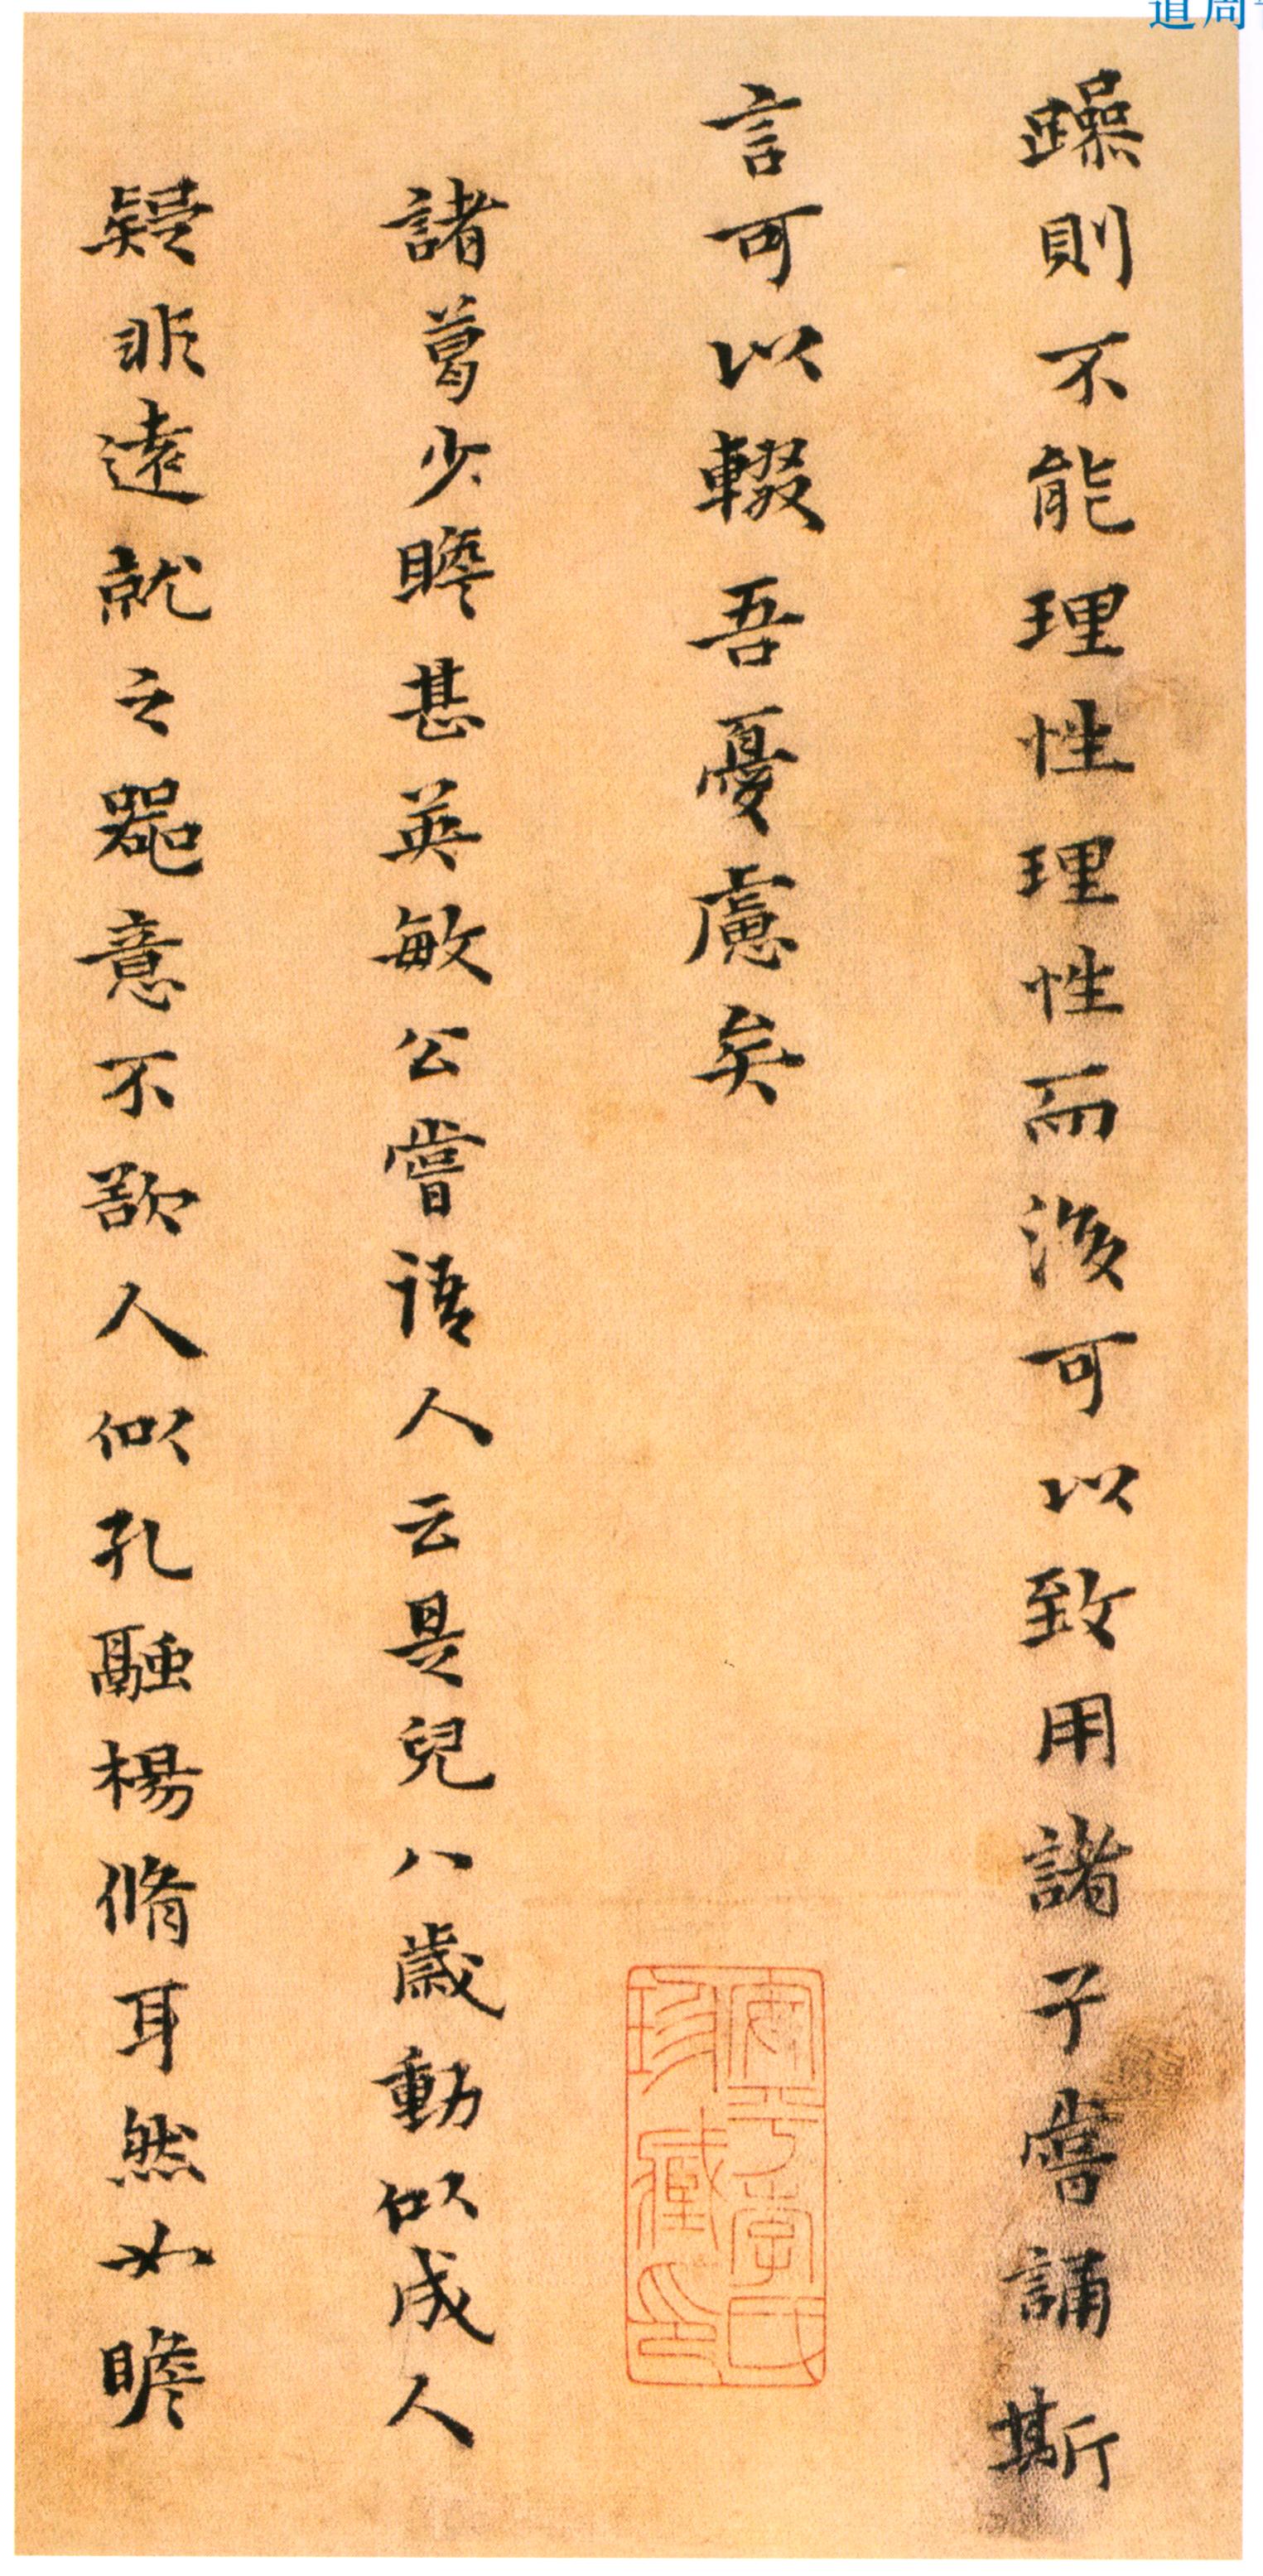 道周
躁則不能理性理性而後可以致用諸子嘗誦斯
言可以輟吾憂慮矣
諸葛少瞻甚英敏公嘗語人云是兒八歲動似成人
疑非遠就之器意不欲人似孔融楊脩耳然如瞻